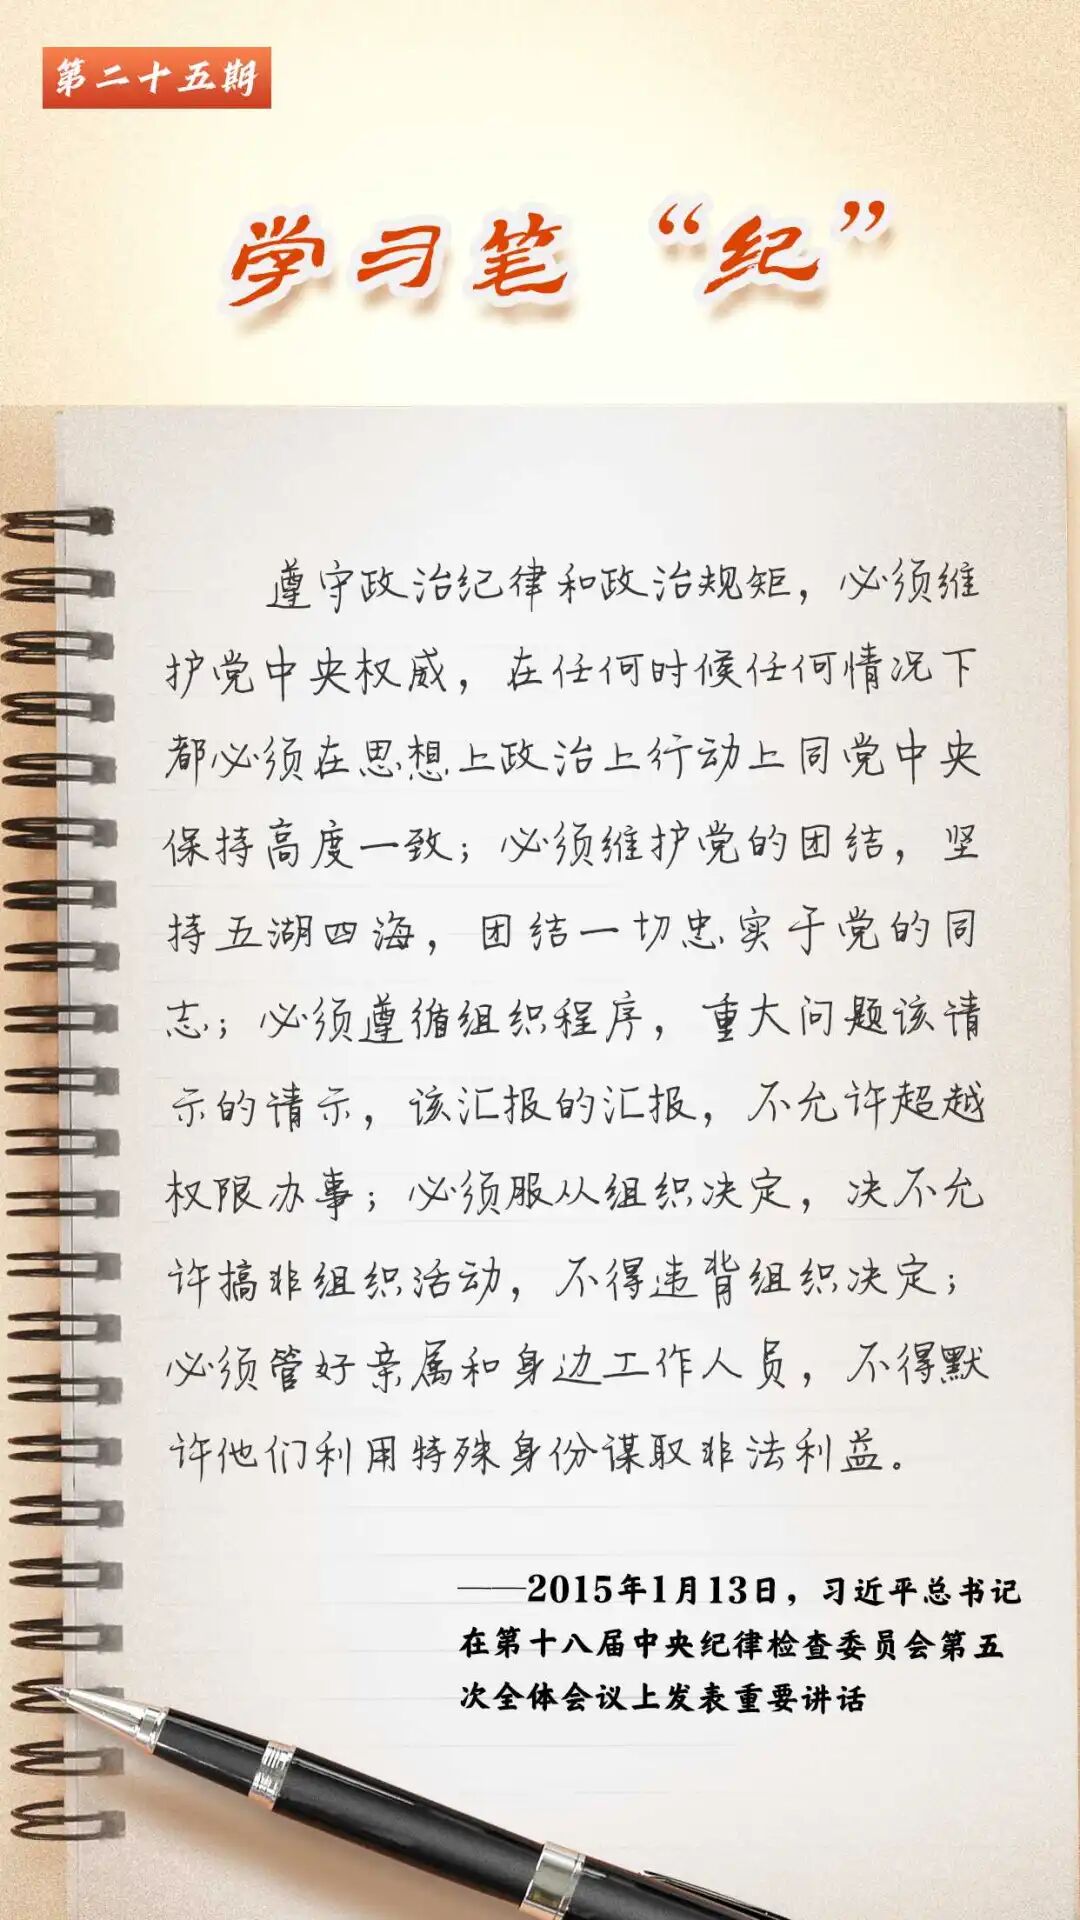 第二十五期
学习笔“纪”
遵守政治纪律和政治规矩，必须维
护党中央权威，在任何时候任何情况下
都必须在思想上政治上行动上同党中央
保持高度一致；必须维护党的团结，坚
持五湖四海，团结一切忠实于党的同
志；必须遵循组织程序，重大问题该请
示的请示，该汇报的汇报，不允许超越
权限办事；必须服从组织决定，决不允
许搞非组织活动，不得违背组织决定；
必须管好亲属和身边工作人员，不得默
许他们利用特殊身份谋取非法利益。
——2015年1月13日，习近平总书记
在第十八届中央纪律检查委员会第五
次全体会议上发表重要讲话